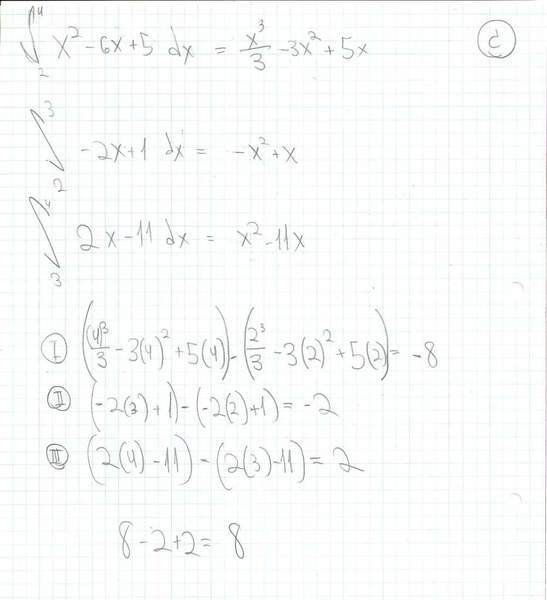 ∫₂⁴ x² - 6x + 5 dx = x³/3 - 3x² + 5x
∫₂³ -2x + 1 dx = -x² + x
∫₃⁴ 2x - 11 dx = x² - 11x
I ((4)³/3 - 3(4)² + 5(4)) - (2³/3 - 3(2)² + 5(2)) = -8
II (-2(3) + 1) - (-2(2) + 1) = -2
III (2(4) - 11) - (2(3) - 11) = 2
8 - 2 + 2 = 8